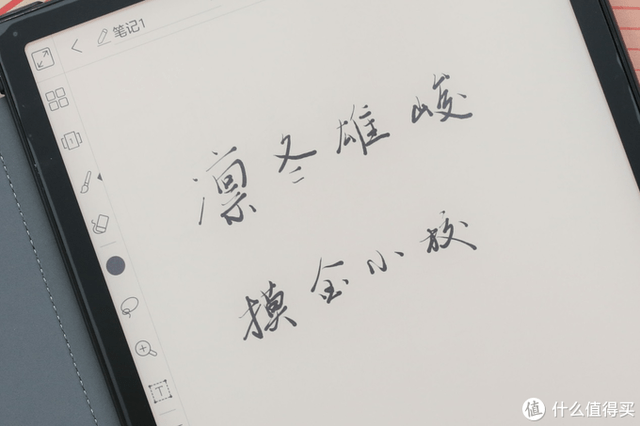 笔记1
凛冬雄峻
摸金小校
值 什么值得买